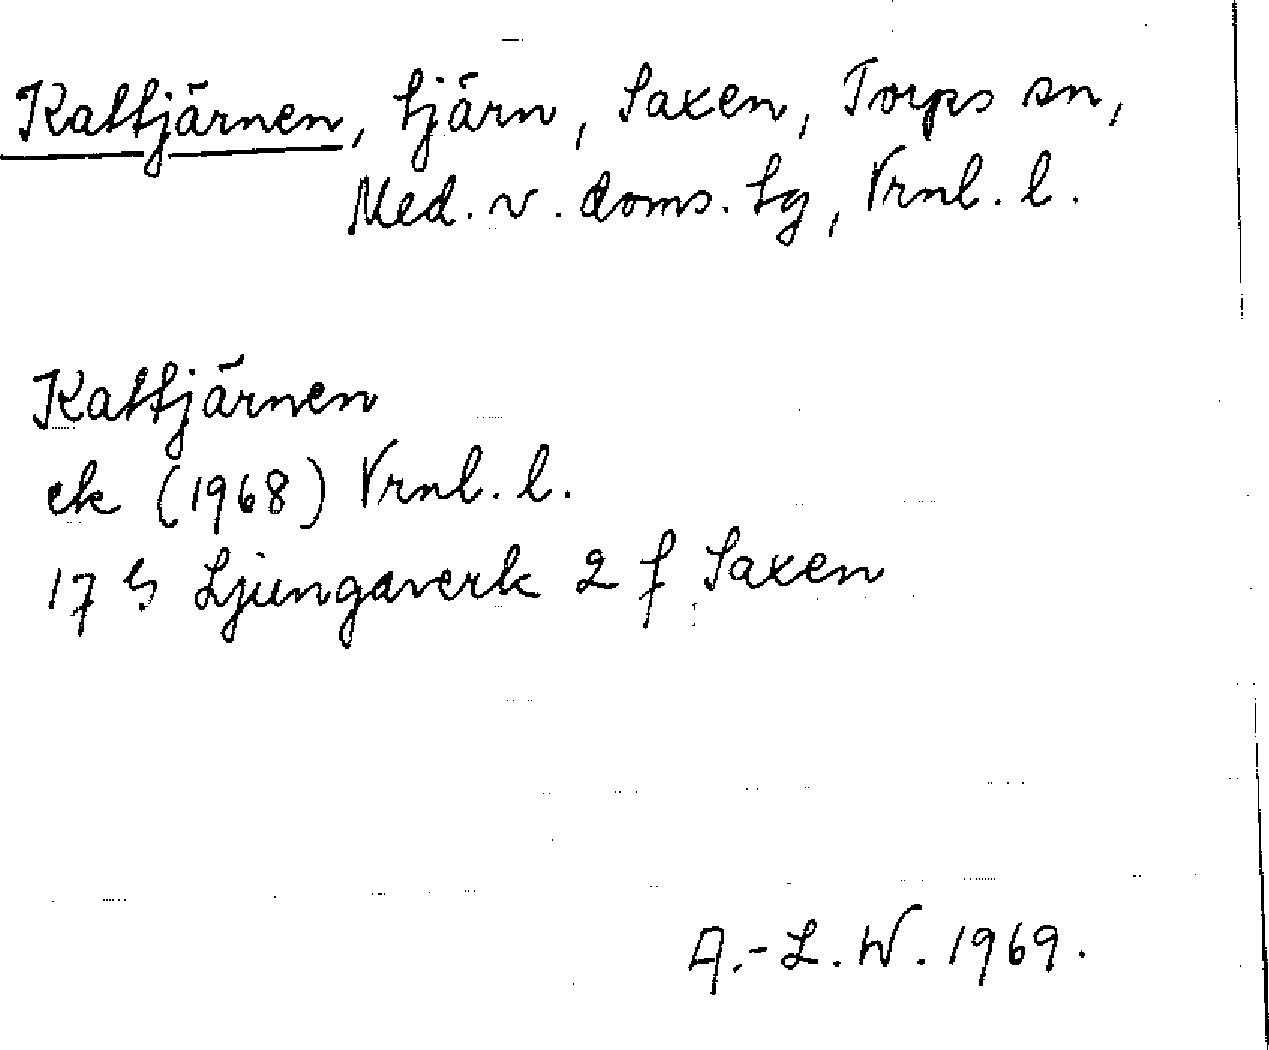 Kattjärnen, tjärn, Saxen, Torps sn,
Med. v. doms. tg, Vrnl. l.
Kattjärnen
ek (1968) Vrnl. l.
17 G Ljungaverk 2 f Saxen
A.-L. W. 1969.